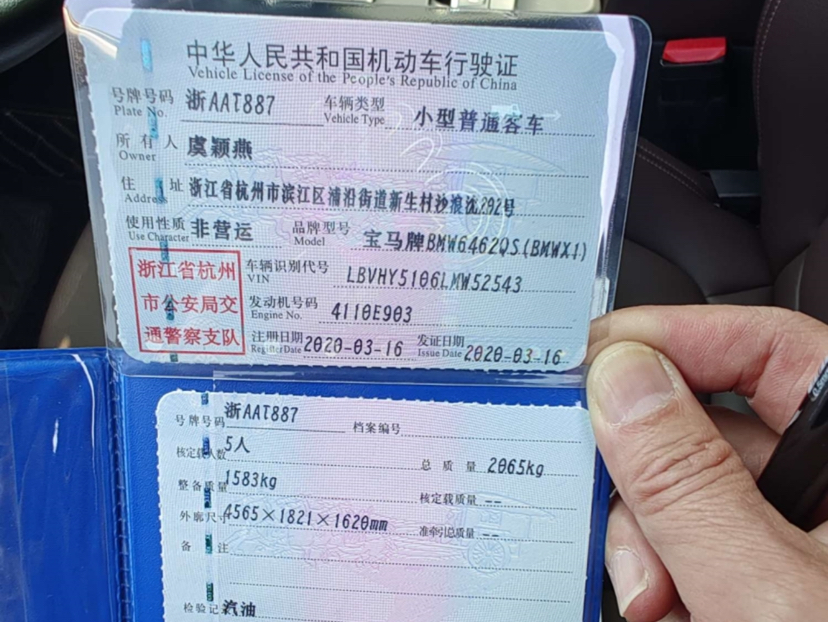 中华人民共和国机动车行驶证
Vehicle License of the People's Republic of China
号牌号码 浙AAT887 车辆类型 小型普通客车
Plate No. Vehicle Type
所有人 虞颖燕
Owner
住址 浙江省杭州市滨江区浦沿街道新生村沙浪沈292号
Address
使用性质 非营运 品牌型号 宝马牌BMW6462QS(BMWX1)
Use Character Model
浙江省杭州
市公安局交
通警察支队
车辆识别代号 LBVHY5106LMW52543
VIN
发动机号码 4110E903
Engine No.
注册日期 2020-03-16 发证日期 2020-03-16
Register Date Issue Date
号牌号码 浙AAT887 档案编号
核定载人数 5人 总质量 2065kg
整备质量 1583kg 核定载质量 --
外廓尺寸 4565×1821×1620mm 准牵引总质量 --
备注
检验记 汽油